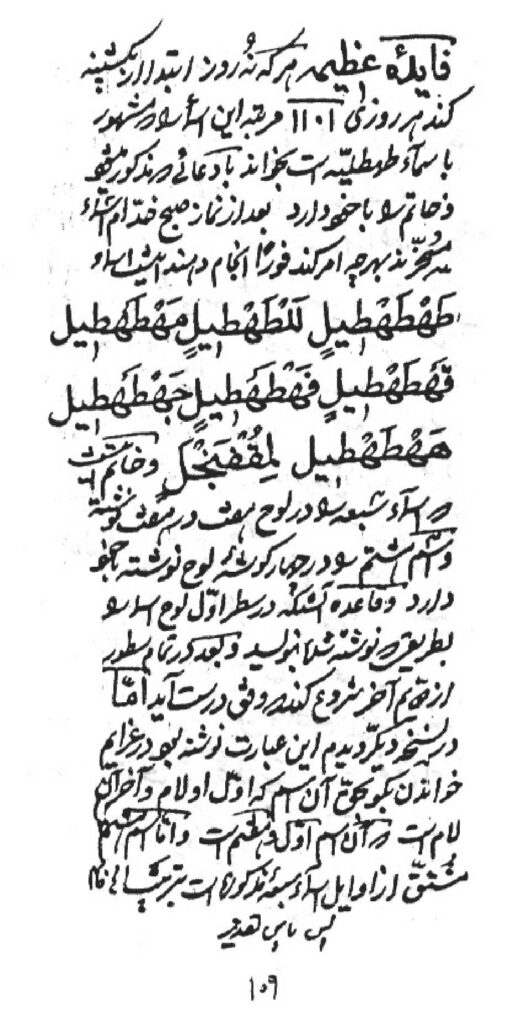 فایدهٔ عظیمه هر که نه روز ابتدا از یکشنبه
کند هر روزی ۱۱۰۱ مرتبه این اسماء را که مشهور
باسماء طهطلیّه است بخواند با دعائی که مذکور
و خاتم را با خود دارد بعد از نماز صبح خدّام اسماء
مسخّر شوند بهر چه امر کند فورًا انجام دهند اینست اسماء
طَهْطَهْطِیلٍ لَلْطَهْطِیلٍ مَهْطَهْطِیل
قَهْطَهْطِیلٍ فَهْطَهْطِیلٍ جَهْطَهْطِیل
هَهْطَهْطِیل لِمُقْفَنْجَلَ و خاتم
که اسماء سبعه را در لوح هفت در هفت نوشته
و اسم هشتم را در چهار گوشهٔ لوح نوشته با خود
دارد و قاعده آنستکه در سطر اوّل لوح اسماء را
بطریق که نوشته شد بنویسد و بعد در تمام سطور
از آخر شروع کند که وفق درست آید امّا
در نسخه دیگر دیدم این عبارت نوشته بود در عزایم
خواندن بگو بحقّ آن اسم که اوّل او لام و آخر آن
لام است که آن اسم اوّل و هفتم است و امّا اسم هشتم
مشتقّ از اوایل اسماء سبعه مذکوره است
۱۵۹